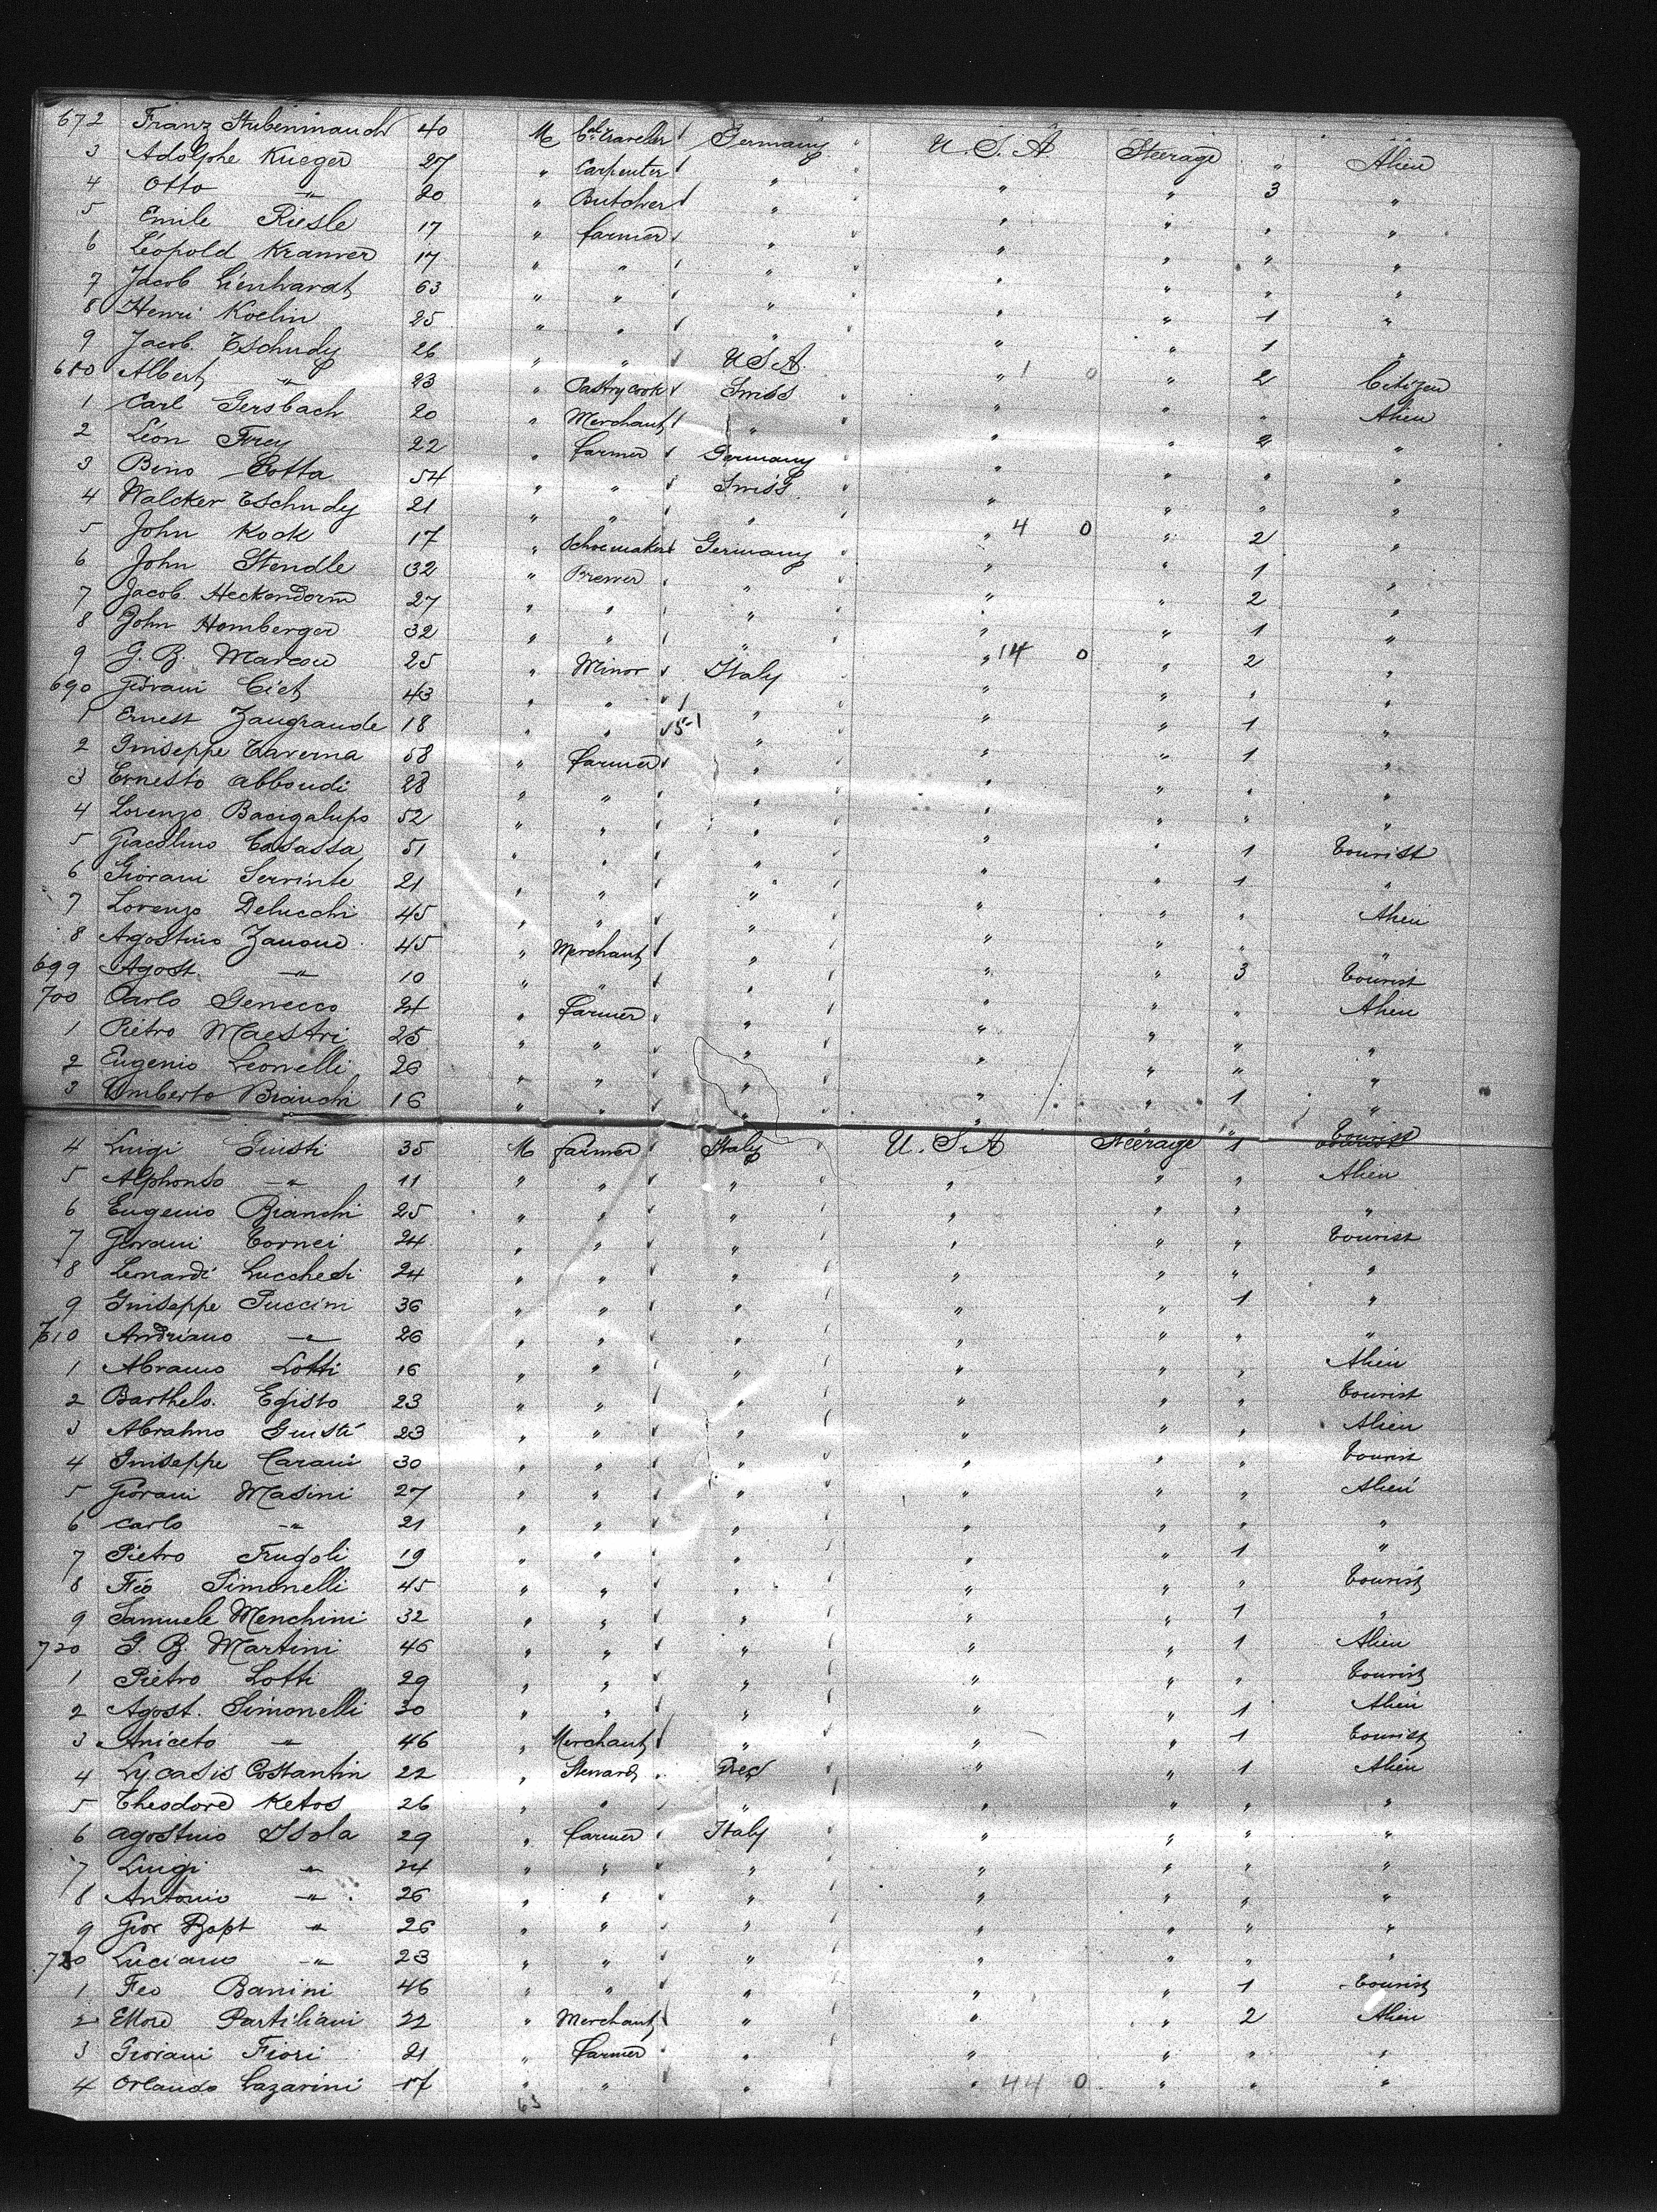 672 Franz Stubenrauch 40 M Cal. Traveler Germany U.S.A Steerage " Alien
3 Adolphe Krieger 27 " Carpenter " " " 3 "
4 Otto " 20 " Butcher " " " " "
5 Emile Riesle 17 " farmer " " " " "
6 Léopold Kramer 17 " " " " " " "
7 Jacob Lienhardt 63 " " " " " 1 "
8 Henri Koelin 25 " " " " " 1 "
9 Jacob. Tschudy 26 " " U.S.A. " 1 0 " 2 Citizen
680 Albert " 23 " Pastrycook Swiss " " " Alien
1 Carl Gersbach 20 " Merchant " " " 2 "
2 Léon Frey 22 " farmer Germany " " " "
3 Beno Cotta 54 " " Swiss " " " "
4 Walcker Tschudy 21 " " " " 4 0 " 2 "
5 John Kock 17 " Schoemaker Germany " " 1 "
6 John Stendle 32 " Brewer " " " 2 "
7 Jacob. Heckendorm 27 " " " " " 1 "
8 John Homberger 32 " " " " 14 0 " 2 "
9 J. B. Marcou 25 " Minor Italy " " " "
690 Giovani Ciet 43 " " " " " 1 "
1 Ernest Zaugrande 18 " " 5-1 " " " 1 "
2 Guiseppe Taverna 58 " farmer " " " " "
3 Ernesto Abboudi 28 " " " " " " "
4 Lorenzo Bacigalupo 52 " " " " " 1 Tourist
5 Giacolino Casassa 51 " " " " " 1 "
6 Giovani Servinte 21 " " " " " " Alien
7 Lorenzo Delucchi 45 " " " " " " "
8 Agostino Zanone 45 " Merchant " " " 3 Tourist
699 Agost. " 10 " " " " " " Alien
700 Carlo Genecco 24 " farmer " " " " "
1 Pietro Maestri 25 " " " " " " "
2 Eugenio Leonelli 26 " " " " " 1 "
3 Umberto Bianchi 16 " " " " " " Tourist
4 Luigi Giusti 35 M farmer Italy U.S.A Steerage 1
5 Alphonso " 11 " " " " " " Alien
6 Eugenio Bianchi 25 " " " " " " "
7 Giovani Cornei 24 " " " " " " Tourist
8 Leonardi Lucchesi 24 " " " " " " "
9 Guiseppe Puccini 36 " " " " " 1 "
710 Andriano " 26 " " " " " " "
1 Abramo Lotti 16 " " " " " " Alien
2 Barthelo. Egisto 23 " " " " " " Tourist
3 Abrahmo Guisti 23 " " " " " " Alien
4 Guiseppe Carani 30 " " " " " " Tourist
5 Giovani Masini 27 " " " " " " Alien
6 Carlo " 21 " " " " " " "
7 Pietro Frugoli 19 " " " " " 1 "
8 Féo Simonelli 45 " " " " " " Tourist
9 Samuele Menchini 32 " " " " " 1 "
720 G. B. Martini 46 " " " " " 1 Alien
1 Pietro Lotti 29 " " " " " " Tourist
2 Agost. Simonelli 30 " " " " " 1 Alien
3 Aniceto " 46 " Merchant " " " 1 Tourist
4 Lycasis Costantin 22 " Steward Grec " " 1 Alien
5 Theodore Ketos 26 " " " " " " "
6 Agostino Isola 29 " farmer Italy " " " "
7 Luigi " 24 " " " " " " "
8 Antonio " 26 " " " " " " "
9 Giov Bapt " 26 " " " " " " "
730 Luciano " 23 " " " " " " "
1 Feo Banini 46 " " " " " 1 Tourist
2 Ettore Partiliani 22 " Merchant " " " 2 Alien
3 Giovani Fiori 21 " farmer " " " " "
4 Orlando Lazarini 17 " " " " 44 0 " " "
63